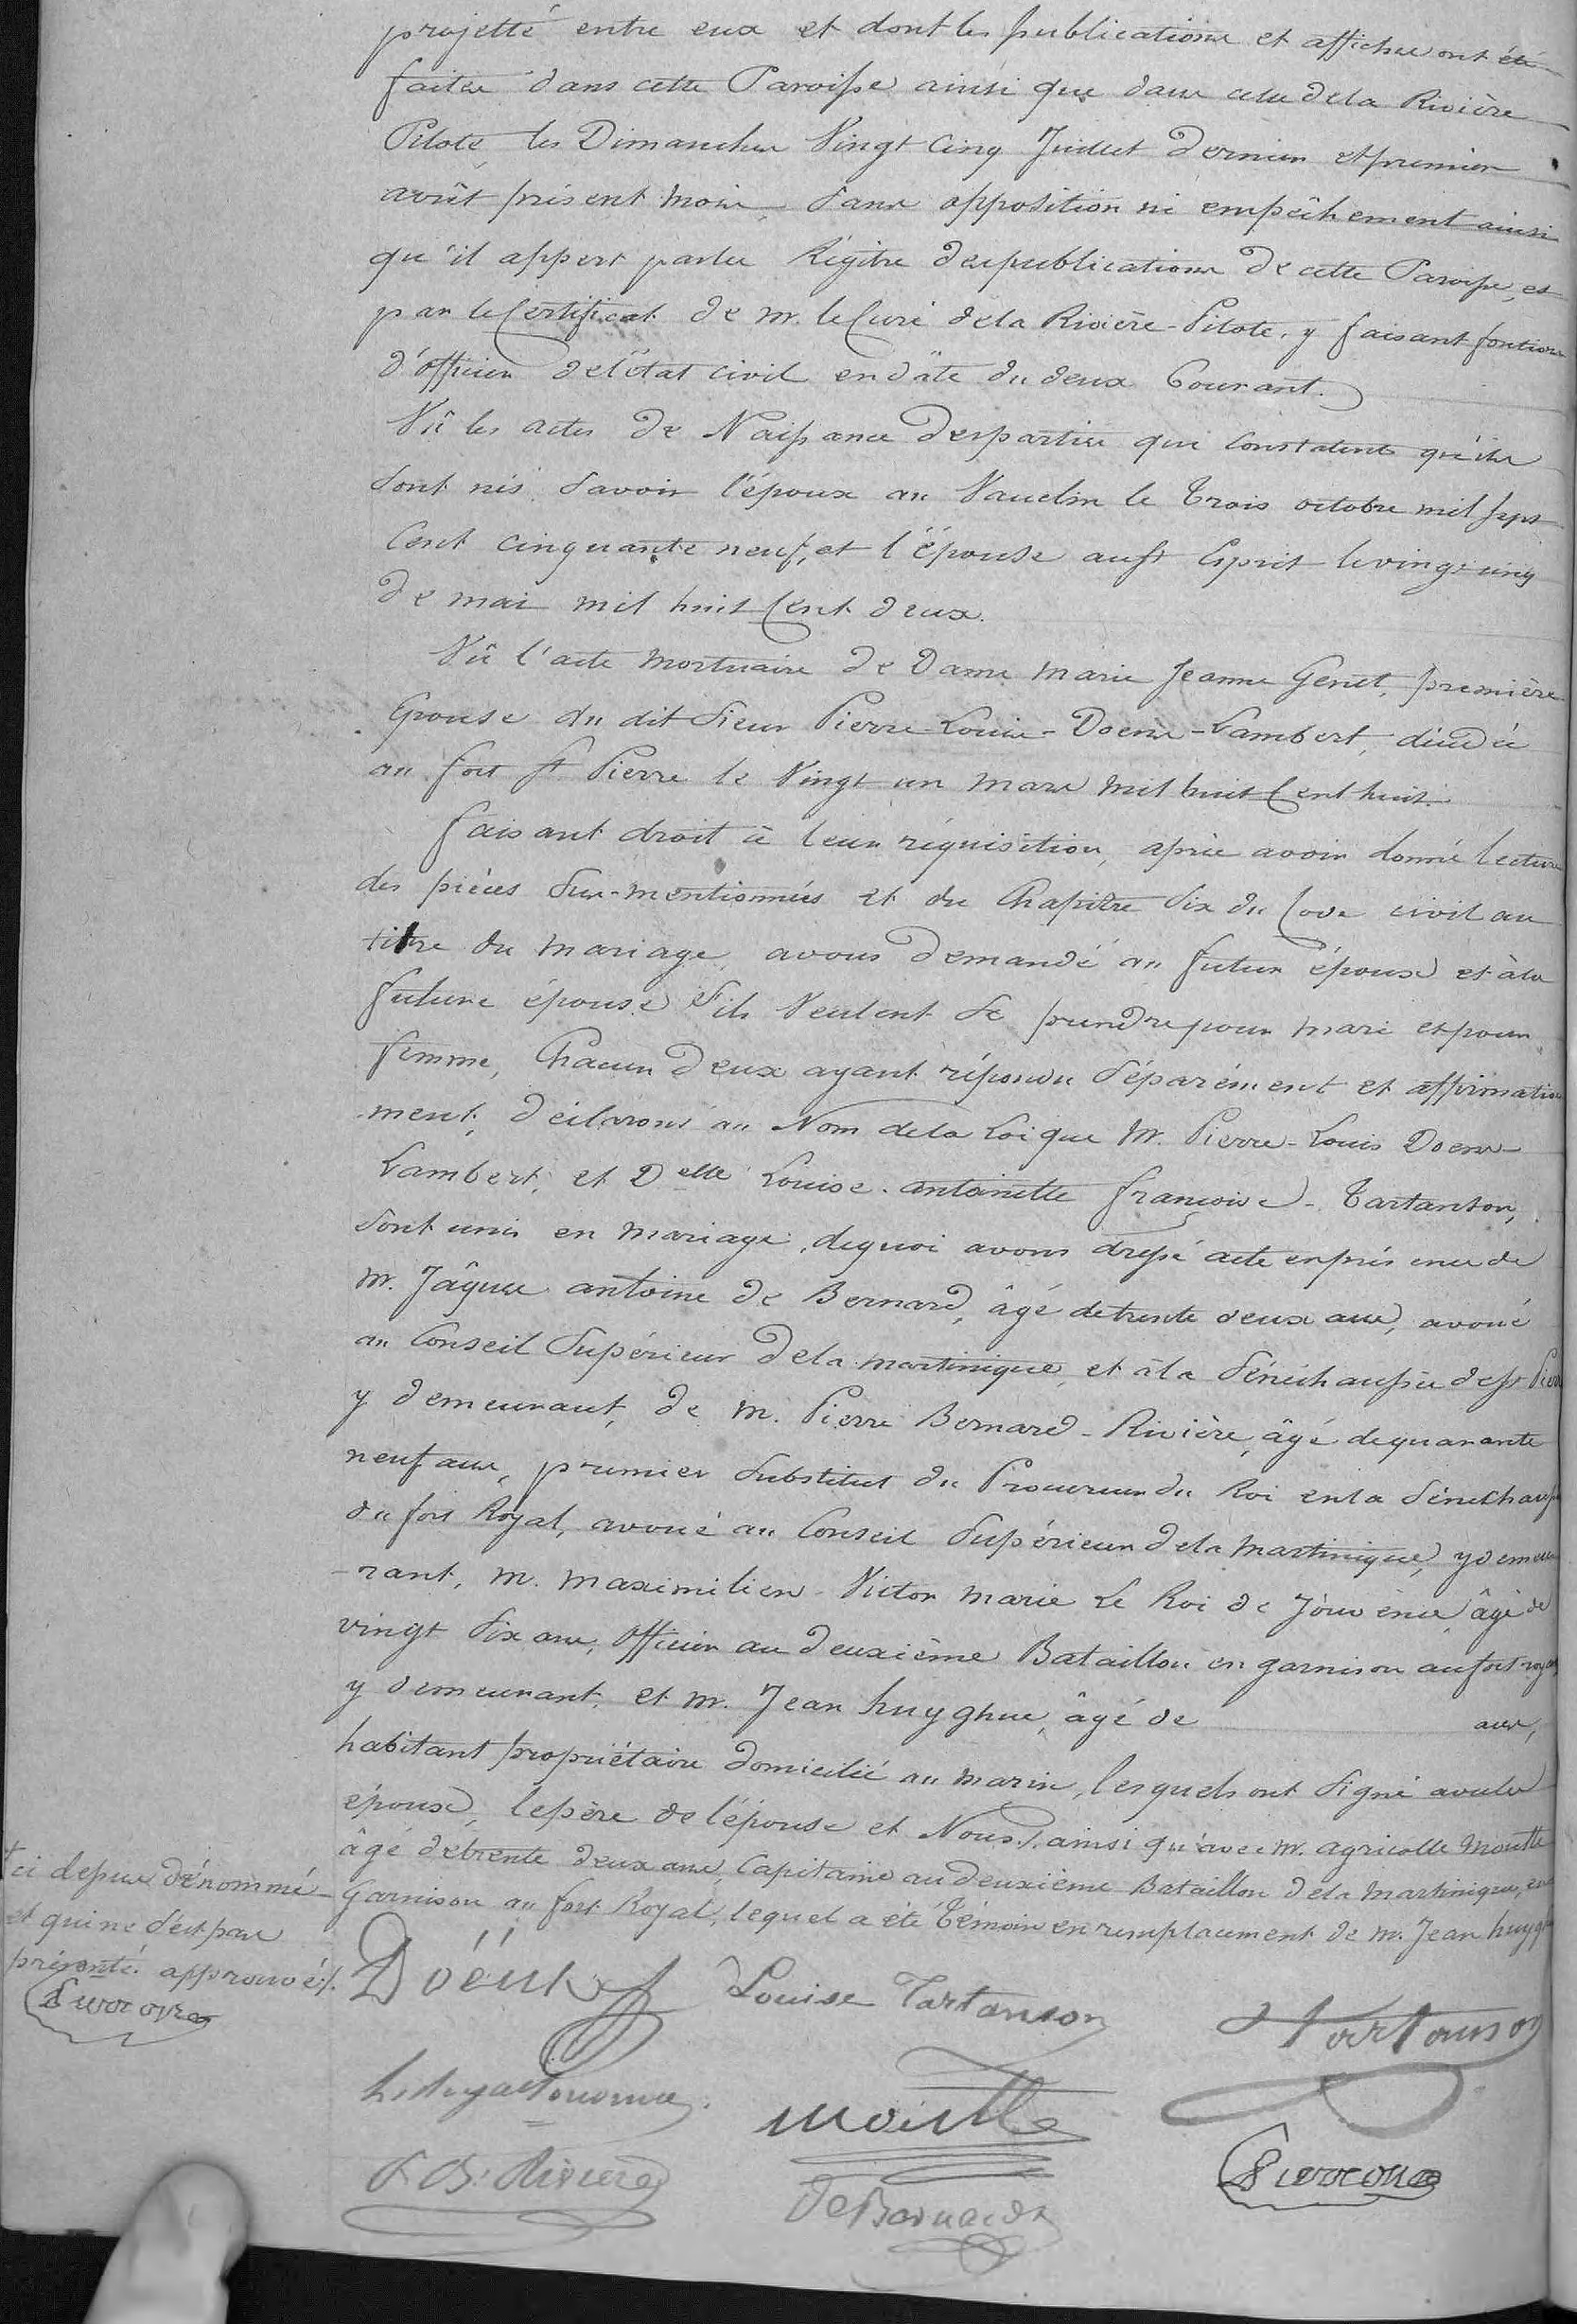 projetté entre eux et dont les publications et affiches ont été
faites dans cette Paroisse ainsi que dans celle de la Rivière
Pilote, les Dimanches Vingt Cinq Juillet dernier et premier
août présent mois, sans opposition ni empêchement ainsi
qu'il appert par les Régitre des publications de cette Paroisse, et
par le Certificat de M. le Curé de la Rivière-Pilote, y faisant fontions
d'officier de l'État civil en dâte du deux Courant.
Vû les actes de Naissance des parties qui constatent qu'ils
sont nés, savoir l'époux au Vauclin le Trois octobre mil sept
Cent cinquante neuf, et l'épouse au St Esprit le vingt cinq
de mai mil huit Cent deux.
Vû l'acte mortuaire de Dame Marie Jeanne Genet, première
Epouse du dit Sieur Pierre-Louis-Doens-Lambert, décédée
au fort St Pierre le Vingt un mars mil huit Cent huit.
faisant droit à leur réquisition, après avoir donné lecture
des pièces sus-mentionnées et du Chapitre Six du Code civil au
titre du mariage, avons demandé au futur époux et à la
future épouse s'ils veulent se prendre pour mari et pour
femme, Chacun d'eux ayant répondu séparément et affirmative
ment, déclarons au Nom de la Loi que M. Pierre-Louis Doens-
Lambert, et Delle Louise-antoinette françoise-Tartanson,
sont unis en mariage, de quoi avons dressé acte en présence de
M. Jâques antoine de Bernard, âgé de trente deux ans, avoué
au Conseil Supérieur de la Martinique, et à la Sénéchaussée de St Pierre
y demeurant, de M. Pierre Bernard-Rivière, âgé de quarante
neuf ans, premier Substitut du Procureur du Roi en la Sénéchaussée
du fort Royal, avoué au Conseil Supérieur de la Martinique, y demeu
-rant, M. Maximilien-Victor Marie Le Roi de Jouvence, âgé de
vingt Six ans, Officier au deuxième Bataillon en garnison au fort royal
y demeurant, et M. Jean huyghue, âgé de ans,
habitant propriétaire domicilié au Marin, lesquels ont signé avec les
époux, le père de l'épouse et Nous, ainsi qu'avec M. agricolle Moutte
âgé de trente deux ans, Capitaine au deuxième Bataillon de la Martinique, en
Garnison au fort Royal, lequel a été Témoin en remplacement de M. Jean huyghue
+ ci dessus dénommé
et qui ne s'est pas
présenté. approuvé ./.
Doëns
Louise Tartanson
Tartanson
Moutte
P. B. Rivière
De Bernard